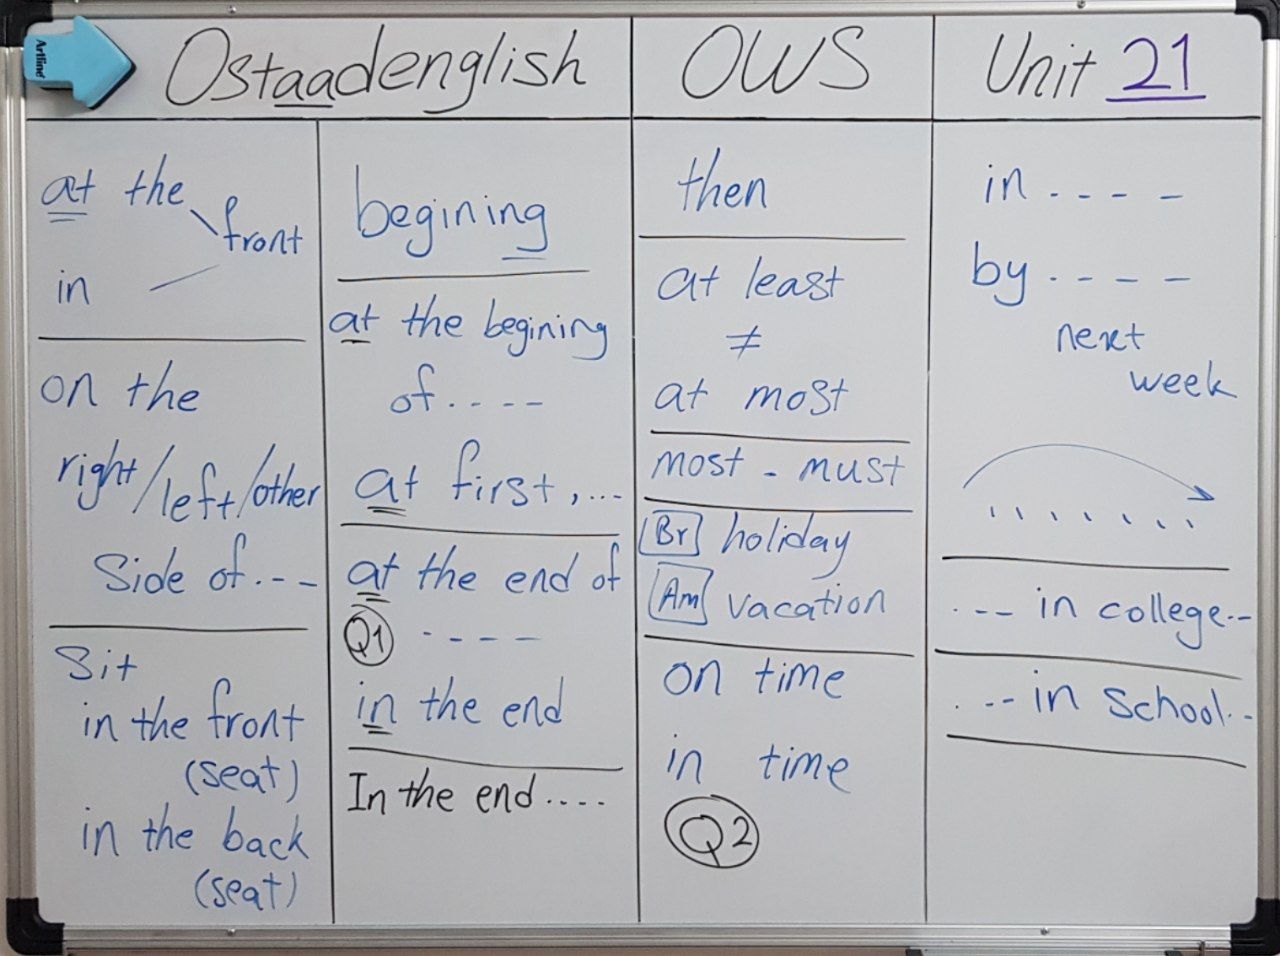 Artline
Ostaadenglish
OWS
Unit 21
at the
front
in
on the
right/left/other
Side of.---
Sit
in the front
(seat)
in the back
(seat)
begining
at the begining
of.----
at first,...
at the end of
Q1 ----
in the end
In the end....
then
at least
≠
at most
most - must
Br holiday
Am vacation
on time
in time
Q2
in ----
by ----
next
week
--- in college..
--- in School..